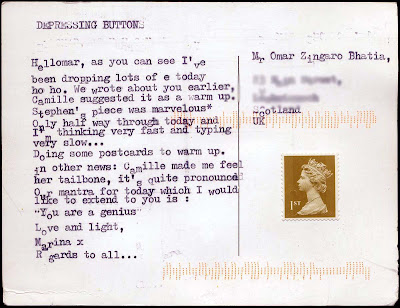 DEPRESSING BUTTONS
Hellomar, as you can see I've
been dropping lots of e today
ho ho. We wrote about you earlier,
Camille suggested it as a warm up.
Stephen's piece was marvelous*
Only half way through today and
I'm thinking very fast and typing
very slow...
Doing some postcards to warm up.
in other news: Camille made me feel
her tailbone, it's quite pronounced
Our mantra for today which I would
like to extend to you is :
"You are a genius"
Love and light,
Marina x
R gards to all...
Mr Omar Zingaro Bhatia,
Scotland
UK
1ST